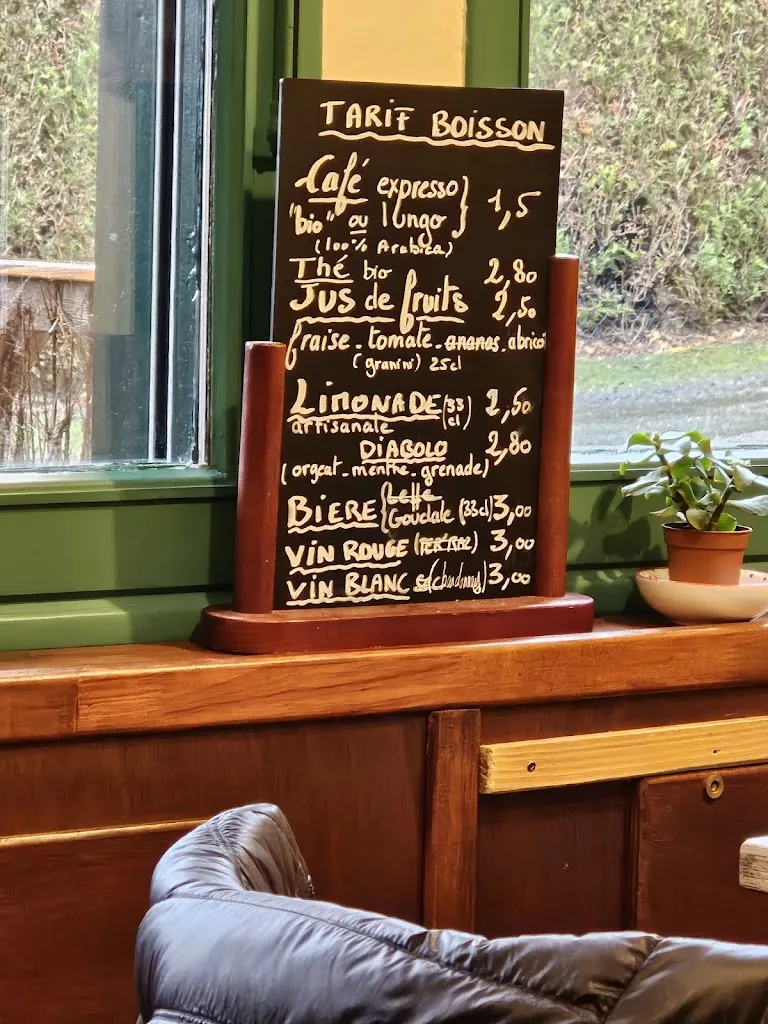 TARIF BOISSON
Café expresso
"bio" ou lungo } 1,5
(100% Arabica)
Thé bio 2,80
JUS de fruits 2,50
fraise - tomate - ananas - abricot
(granini) 25cl
LIMONADE (33 cl) 2,50
artisanale
DIABOLO 2,80
(orgeat - menthe - grenade)
BIERE { Leffe
Goudale (33cl) 3,00
VIN ROUGE 3,00
VIN BLANC (chardonnay) 3,00